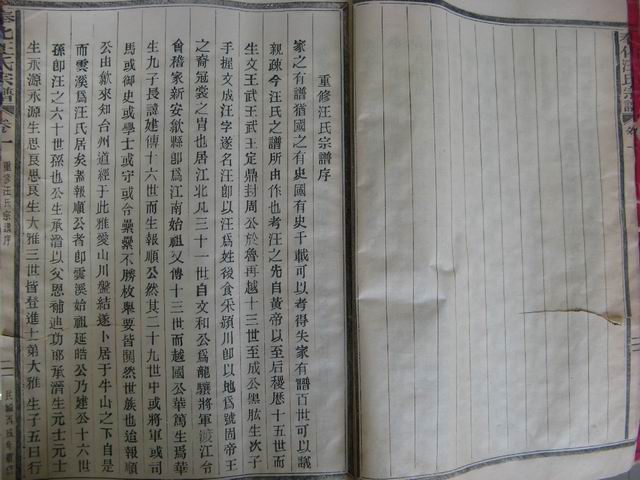 重修汪氏宗譜序
家之有譜猶國之有史國有史千載可以考得失家有譜百世可以議
親疎今汪氏之譜所由作也考汪之先自黃帝以至后稷歷十五世而
生文王武王武王定鼎封周公於魯再越十三世至成公黑肱生次子
手握文成汪字遂名汪卽以汪爲姓後食采潁川卽以地爲號固帝王
之裔冠裳之冑也居江北凡三十一世自文和公爲龍驤將軍渡江令
會稽家新安歙縣卽爲江南始祖又傳十三世而越國公華萬生爲華
生九子長諱建傳十六世而生報順公然其二十九世中或將軍或司
馬或御史或學士或守或令纍纍不勝枚舉要皆閥然世族也迨報順
公由歙來知台州道經于此雅愛山川盤結遂卜居于牛山之下自是
而雲溪爲汪氏居矣者報順公者卽雲溪始祖延皓公乃建公十六世
孫卽汪之六十世孫也公生承滑以父恩補迪功郎承濟生元士元士
生永源永源生思艮思艮生大雅三世皆登進士第大雅生子五曰行
奉化汪氏宗譜
卷一
重修宗譜序
奉化汪氏宗譜
卷一